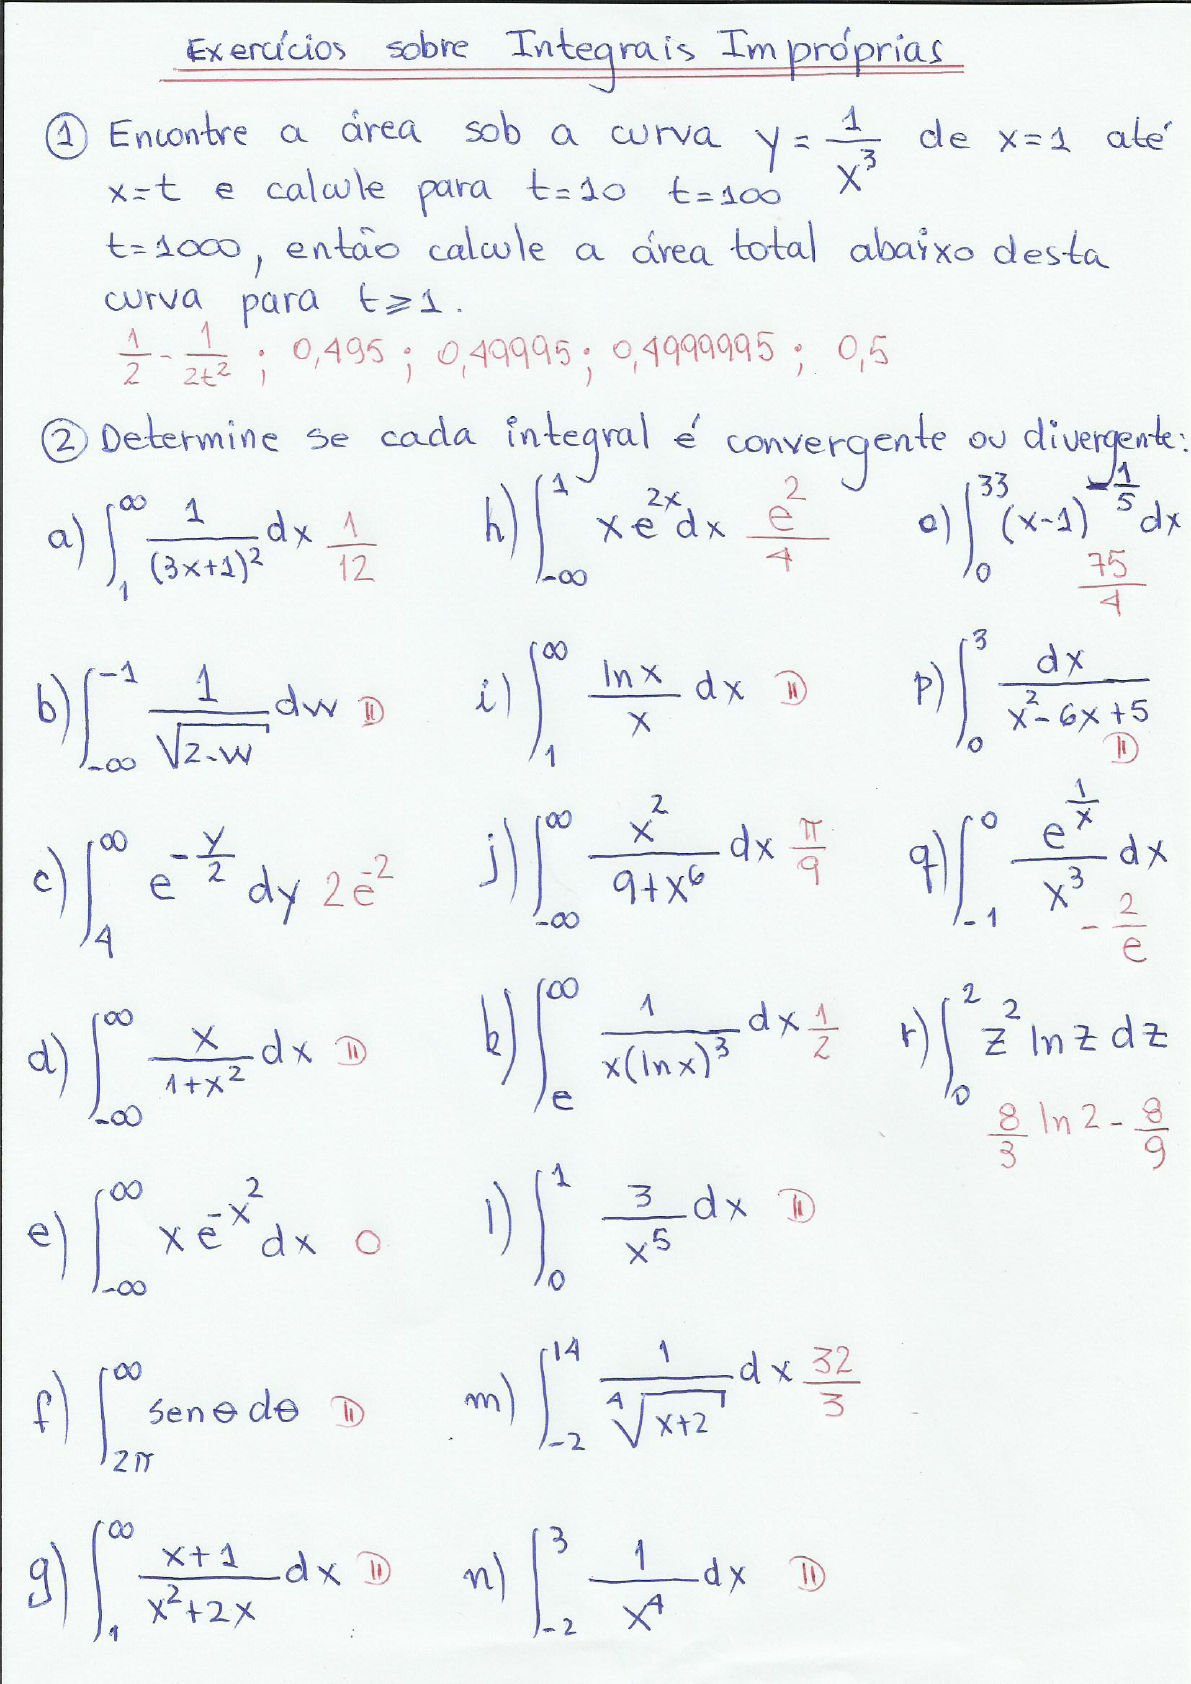 Exercícios sobre Integrais Impróprias
① Encontre a área sob a curva y = 1/x³ de x=1 até
x=t e calcule para t=10 t=100
t=1000, então calcule a área total abaixo desta
curva para t⩾1.
1/2 - 1/2t² ; 0,495 ; 0,49995 ; 0,4999995 ; 0,5
② Determine se cada integral é convergente ou divergente:
a) ∫₁^∞ 1/(3x+1)² dx 1/12
b) ∫_-∞^-1 1/√(2-w) dw D
c) ∫₄^∞ e^(-y/2) dy 2e^-2
d) ∫_-∞^∞ x/(1+x²) dx D
e) ∫_-∞^∞ x e^(-x²) dx 0
f) ∫_2π^∞ sen θ dθ D
g) ∫₁^∞ (x+1)/(x²+2x) dx D
h) ∫_-∞^1 x e^(2x) dx e²/4
i) ∫₁^∞ ln x/x dx D
j) ∫_-∞^∞ x²/(9+x⁶) dx π/9
k) ∫_e^∞ 1/(x(ln x)³) dx 1/2
l) ∫₀^1 3/x⁵ dx D
m) ∫_-2^14 1/⁴√(x+2) dx 32/3
n) ∫_-2^3 1/x⁴ dx D
o) ∫₀^33 (x-1)^(-1/5) dx 75/4
p) ∫₀^3 dx/(x²-6x+5) D
q) ∫_-1^0 e^(1/x)/x³ dx -2/e
r) ∫₀^2 z² ln z dz
8/3 ln 2 - 8/9